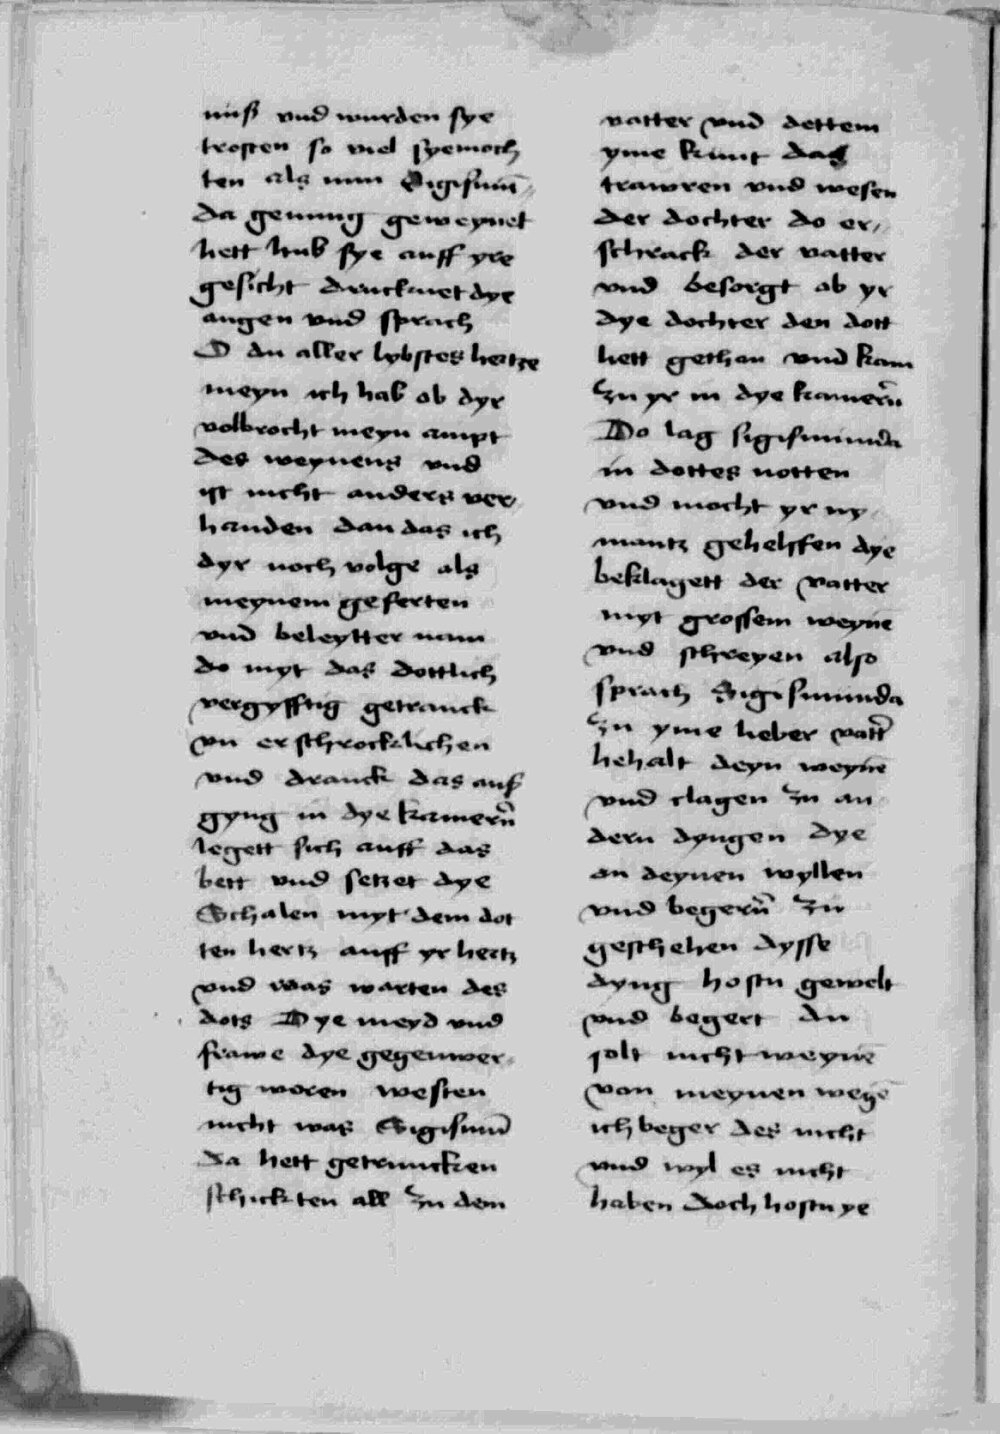 nuß vnd wurden sye
trosten so viel syemoch
ten als nun Sigismū⸗
da genung geweynet
hett hub sye auff yre
gesicht drucknet dye
augen vnd sprach
O du aller lybstes hertze
meyn ich hab ob dyr
volbrocht meyn ampt
des weynens vnd
ist nicht anders ver⸗
handen dan das ich
dyr noch volge als
meynem geferten
vnd beleytter nam
do myt das dottlich
vergyfftig getranck
vn erschrocklichen
vnd dranck das auß
gyng in dye kamern̄
legett sich auff das
bett vnd setzet dye
Schalen myt dem dot
ten hertz auff yr hertz
vnd was warten des
dots Dye meyd vnd
frawe dye gegenwer⸗
tig woren westen
nicht was Sigismū
da hett getruncken
schickten all zu dem
vatter vnd dettem
yme kunt das
trawren vnd wesen
der dochter do er⸗
schrack der vatter
vnd besorgt ob yr
dye dochter den dott
hett gethan vnd kam
zu yr in dye kamern̄
Do lag sigismunda
in dottes notten
vnd mocht yr ny⸗
mantz gehelffen dye
beklagett der vatter
myt grossem weynē
vnd schreyen also
sprach Sigismunda
zu yme lieber vatt̄
behalt deyn weynē
vnd clagen zu an⸗
dern dyngen dye
an deynen wyllen
vnd begern̄ zu
geschehen dysse
dyng hostu gewelt
vnd begert du
solt nicht weynē
von meynen wegē
ich beger des nicht
vnd wyl es nicht
haben doch hostu ye